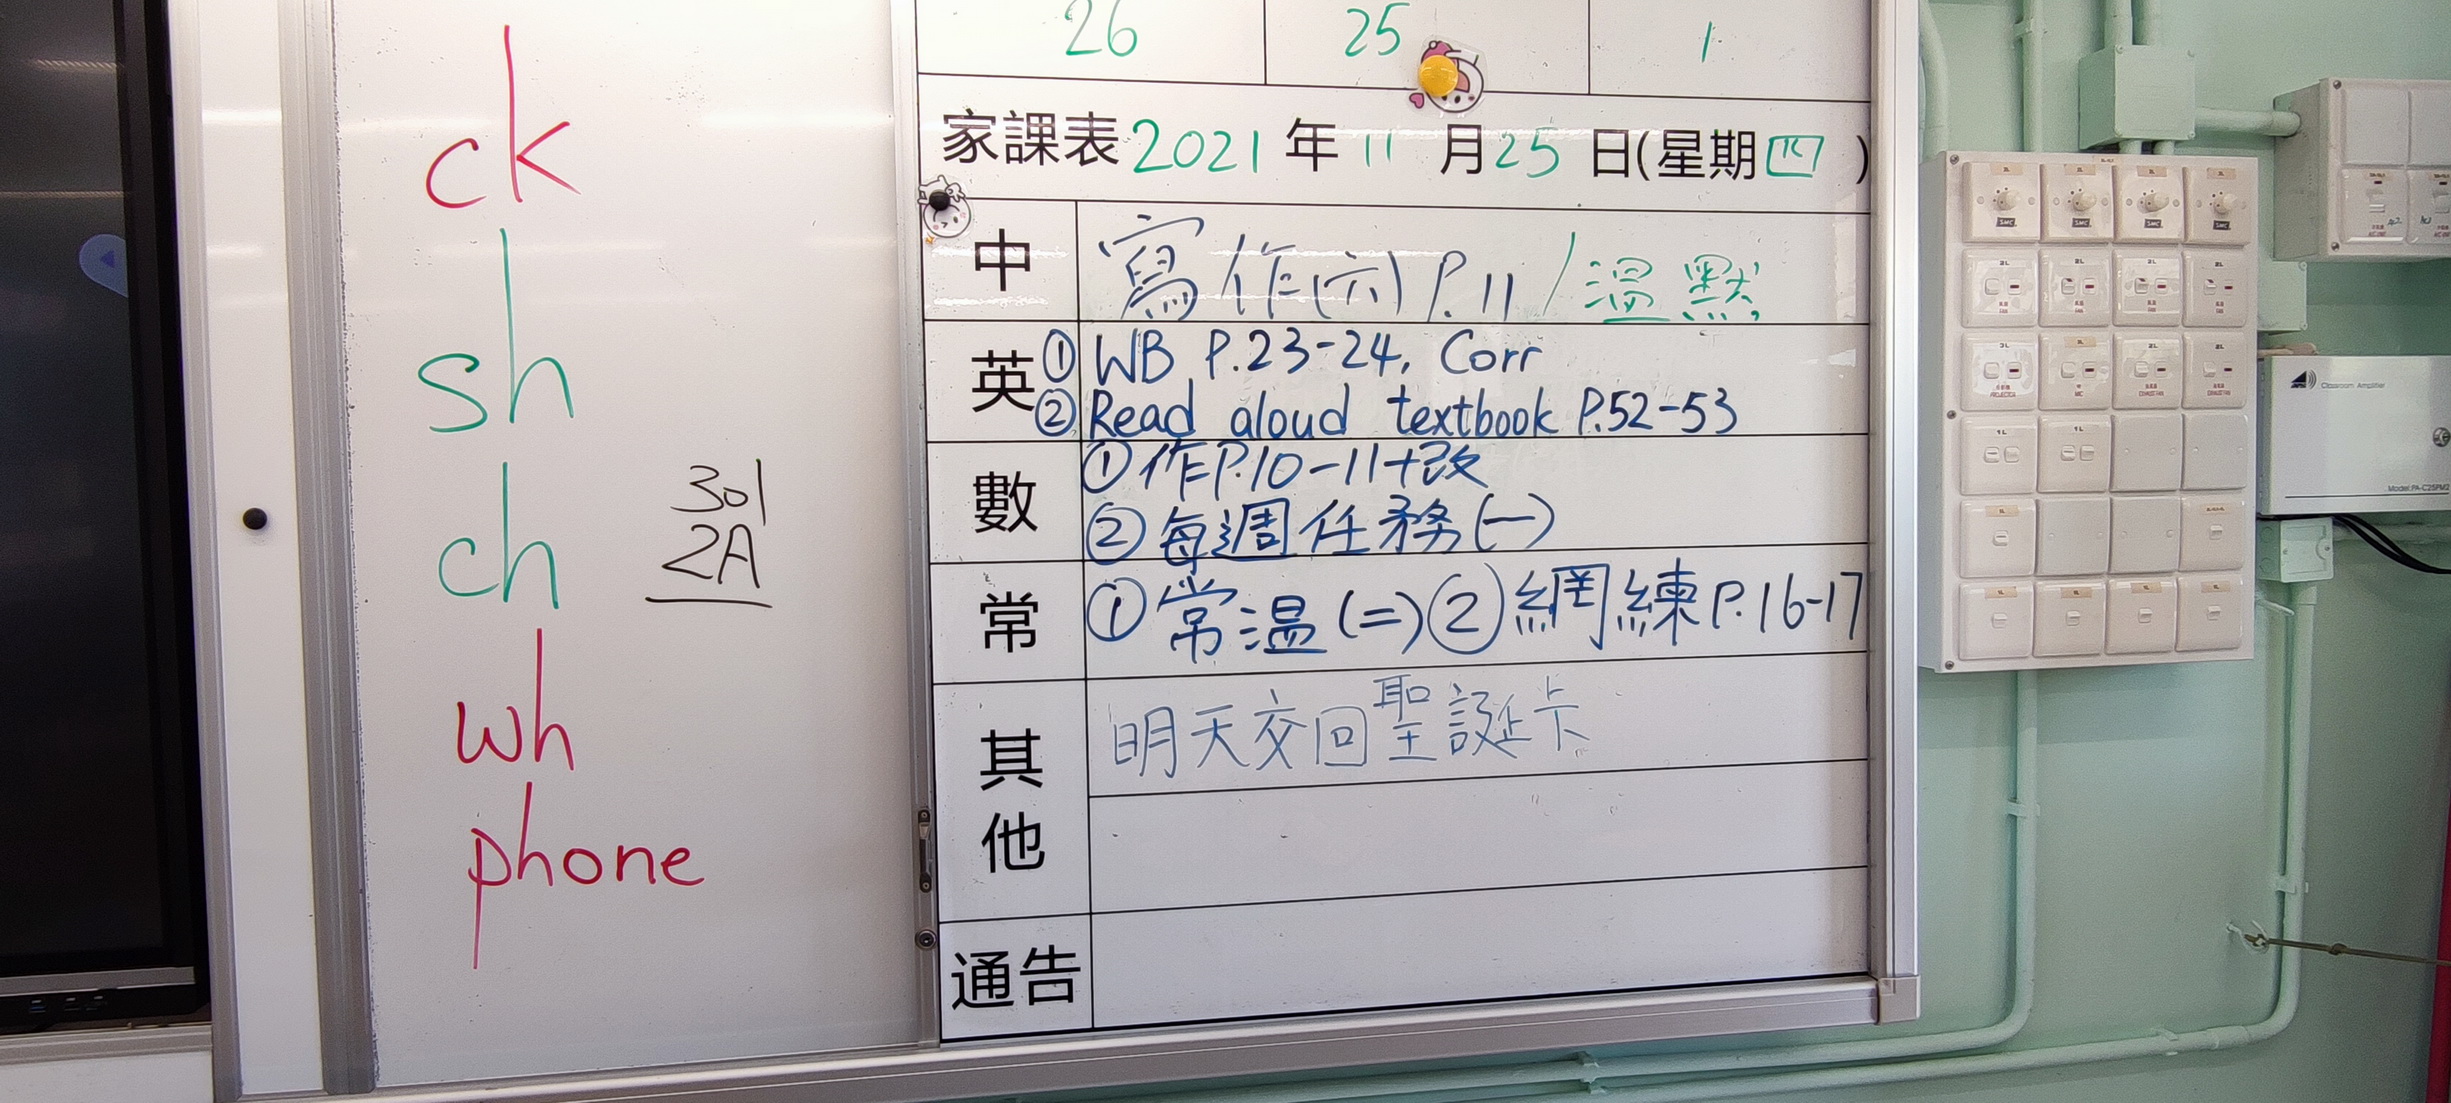 ck
sh
ch
wh
phone
301
2A
26 25 1
家課表 2021 年 11 月 25 日(星期四)
中 寫作(六) P.11 / 溫默
英 ① WB P.23-24, Corr
② Read aloud textbook P.52-53
數 ① 作P.10-11+改
② 每週任務(一)
常 ① 常溫(二) ② 網練 P.16-17
其他 明天交回聖誕卡
通告
Classroom Amplifier